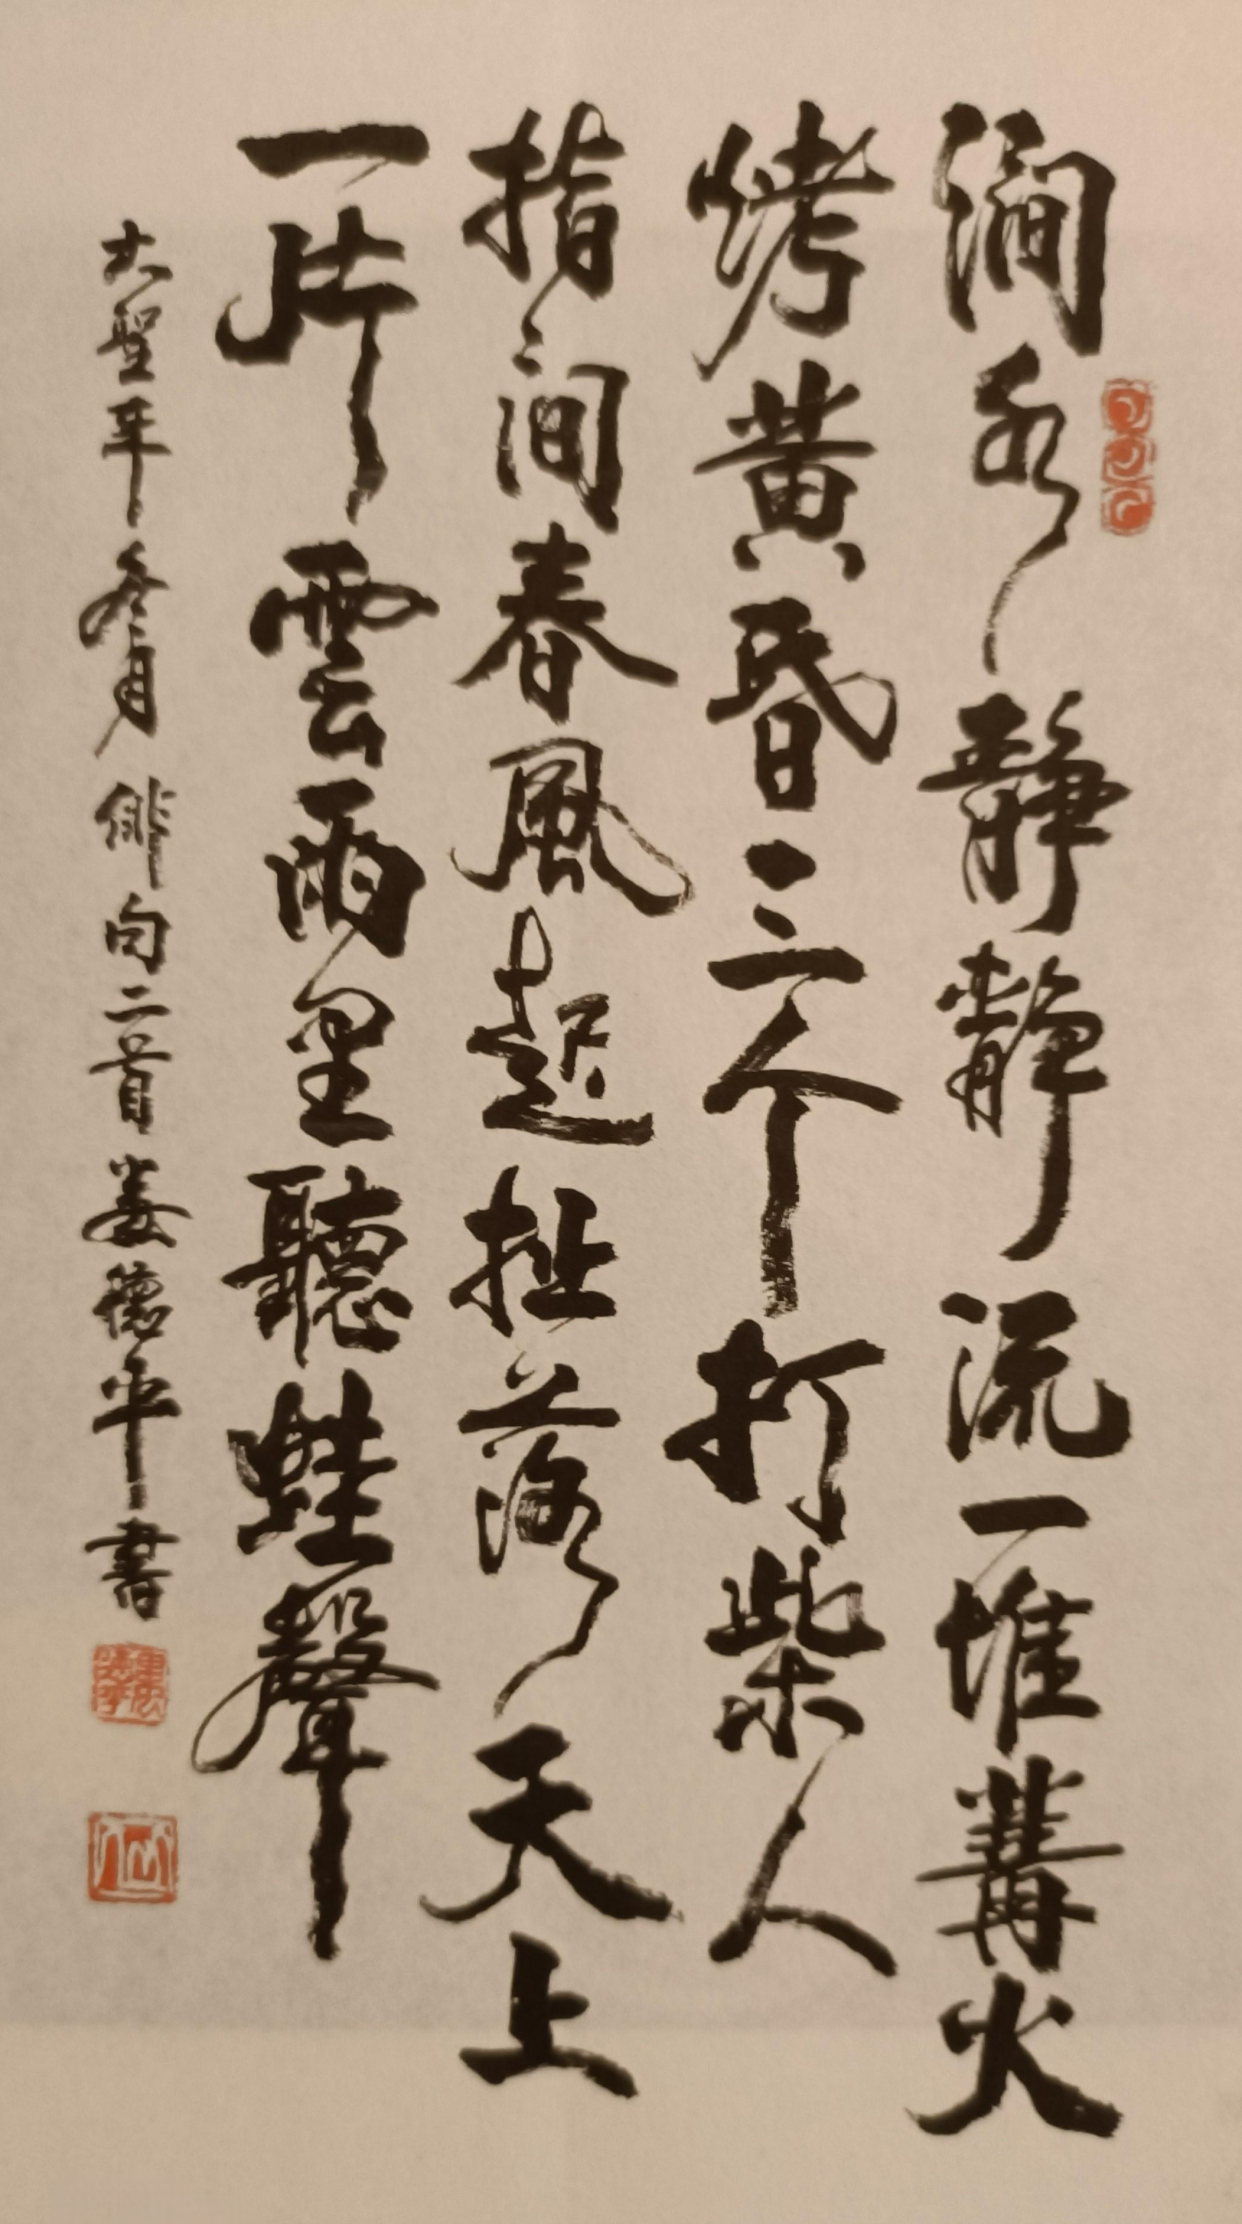 澗水靜靜流一堆篝火
烤黄昏三个打柴人
指间春風起扯落天上
一片雲雨里聽蛙聲
大聖年冬月俳句二首姜德平書